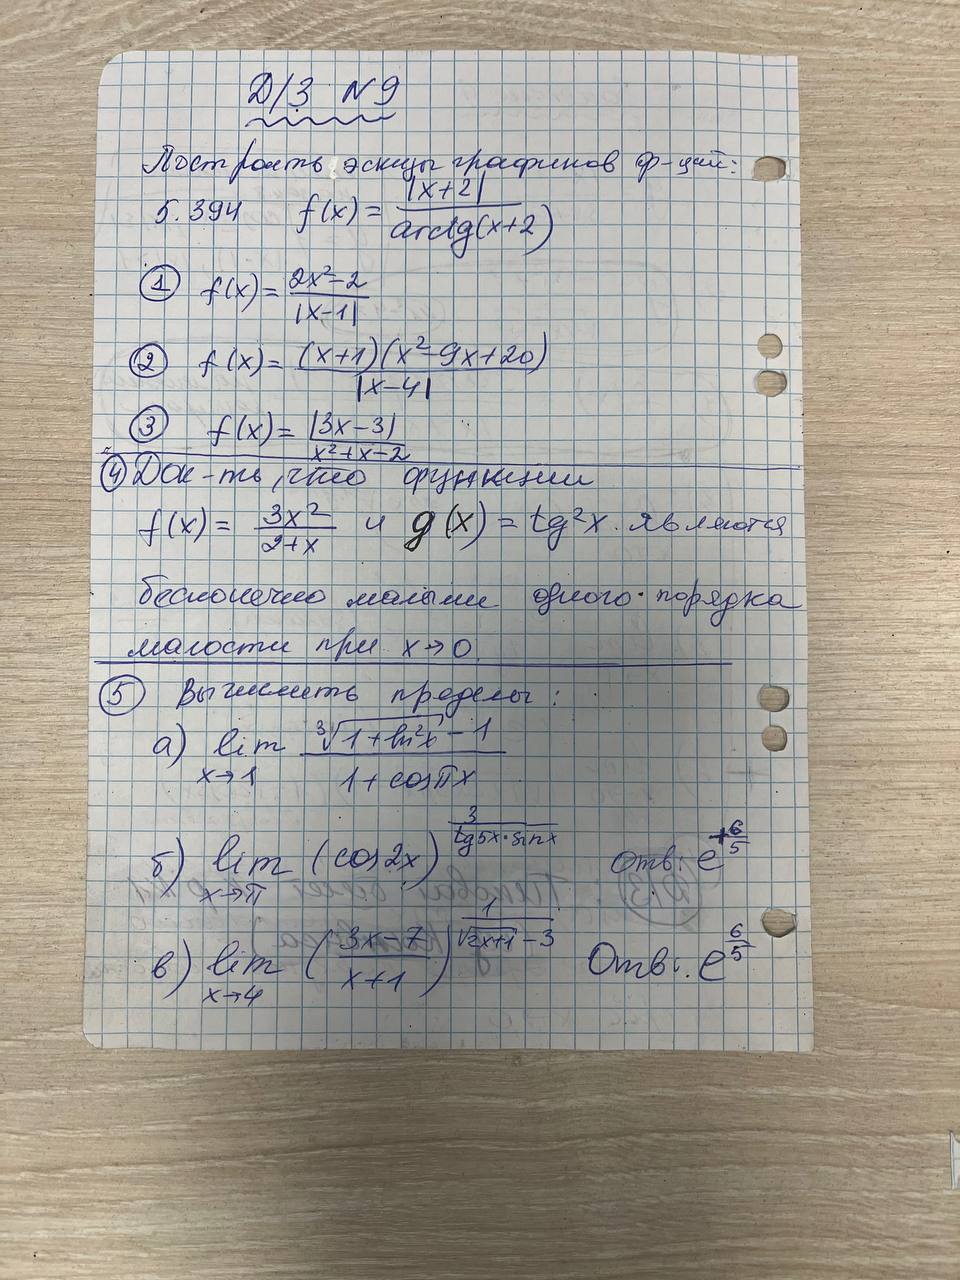 Д/З №9
Построить эскизы графиков ф-ций:
5.394 f(x) = |x+2| / arctg(x+2)
① f(x) = 2x²-2 / |x-1|
② f(x) = (x+1)(x²-9x+20) / |x-4|
③ f(x) = |3x-3| / x²+x-2
④ Док-ть, что функции
f(x) = 3x² / 2+x и g(x) = tg²x являются
бесконечно малыми одного порядка
малости при x→0.
⑤ Вычислить пределы:
а) lim x→1 ∛(1+ln²x) - 1 / 1+cosπx
б) lim x→π (cos2x)^(3 / tg5x·sin x) Отв: e^(+6/5)
в) lim x→4 (3x-7 / x+1)^(1 / √(2x+1) - 3) Отв: e^(6/5)